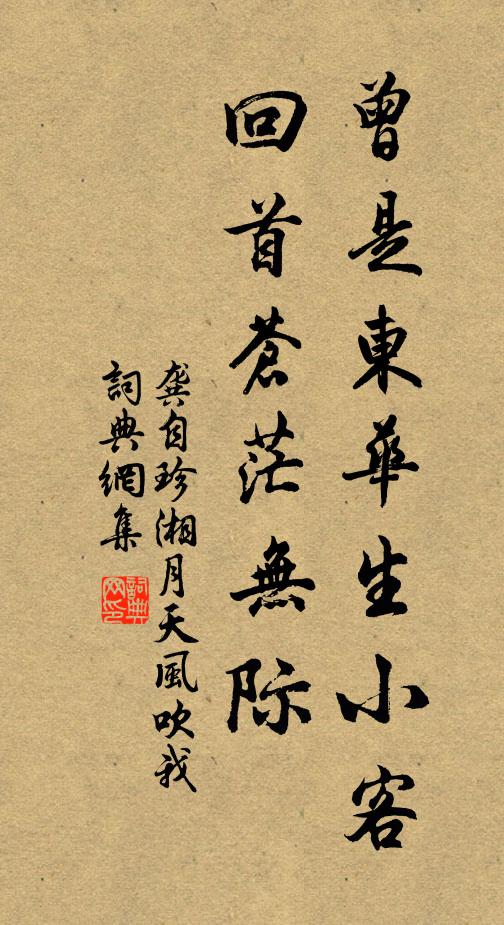 曾是東華生小客
回首蒼茫無际
龔自珍湘月天風吹我
詞典網集
詞典网印